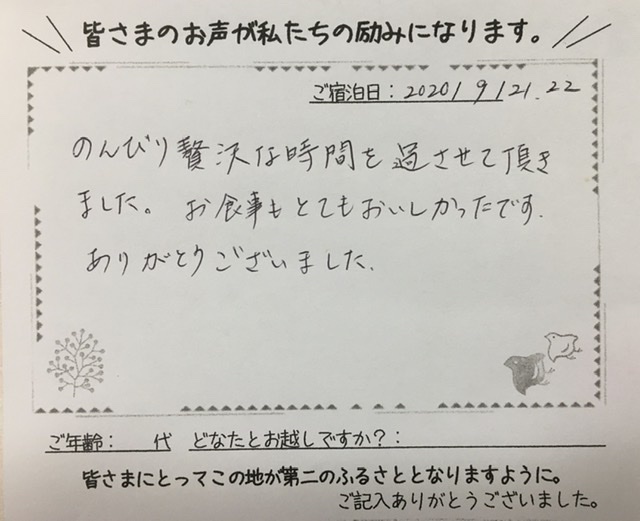 皆さまのお声が私たちの励みになります。
ご宿泊日：2020/9/21.22
のんびり贅沢な時間を過させて頂き
ました。お食事もとてもおいしかったです.
ありがとうございました.
ご年齢：　代　どなたとお越しですか？：
皆さまにとってこの地が第二のふるさととなりますように。
ご記入ありがとうございました。